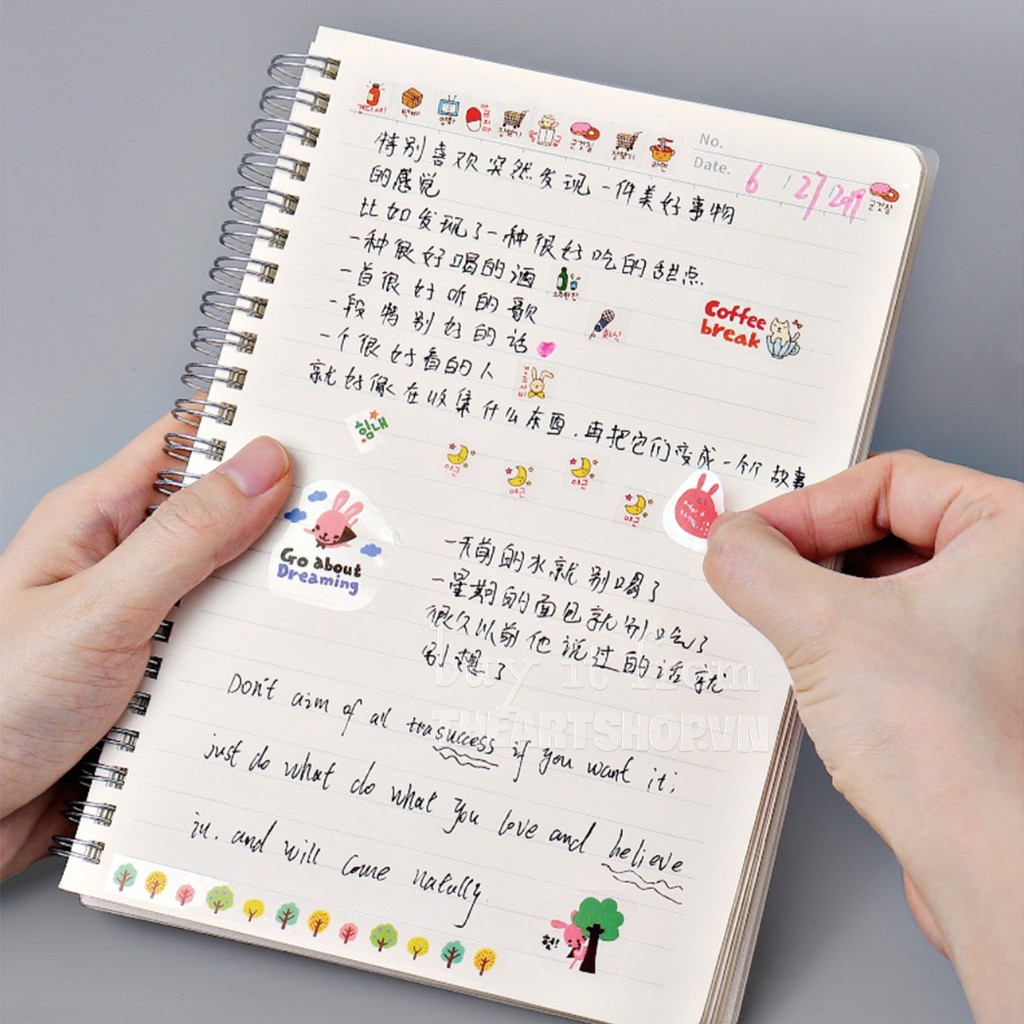 No.
Date. 6 / 27 / 2019
특별喜欢突然发现一件美好事物
的感觉
比如发现了一种很好吃的甜点
一种很好喝的酒
一首很好听的歌
一段特别好的话
一个很好看的人
就好像在收集什么东西.再把它们变成一个个故事
Coffee
break
힘내
야근 야근 야근 야근
Go about
Dreaming
一天前的水就别喝了
一星期的面包就别吃了
很久以前他说过的话就
别想了
buy it from
THEARTSHOP.VN
Don't aim of all success if you want it;
just do what do what you love and believe
in. and will come natully.
헉!